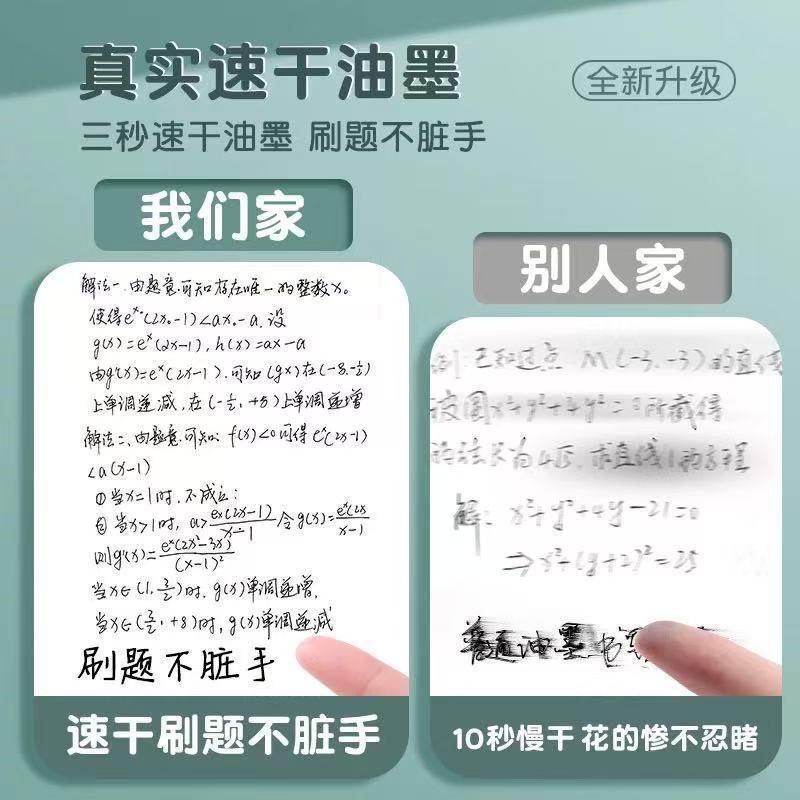 真实速干油墨
全新升级
三秒速干油墨 刷题不脏手
我们家
解法一、由题意可知存在唯一的整数x₀
使得eˣ⁰(2x₀-1)<ax₀-a、设
g(x)=eˣ(2x-1), h(x)=ax-a
由g'(x)=eˣ(2x-1)、可知(gx)在(-8,-½)
上单调递减、在(-½,+8)上单调递增
解法二、由题意可知: f(x)<0可得eˣ(2x-1)
<a(x-1)
①当x=1时、不成立:
②当x>1时, a>ex(2x-1)/x-1 令g(x)=eˣ(2x/x-1
则g'(x)=eˣ(2x²-3x)/(x-1)²
当x∈(1,3/2)时、g(x)单调递增,
当x∈(3/2,+8)时, g(x)单调递减
刷题不脏手
速干刷题不脏手
别人家
例:已知过点 M(-3,-3)的直线
被圆x²+y²+4y²=0所截得
的弦长为4√5、求直线l的方程
解: x²+y²+4y-21=0
⇒x²+(y+2)²=25
普通油墨书写
10秒慢干 花的惨不忍睹